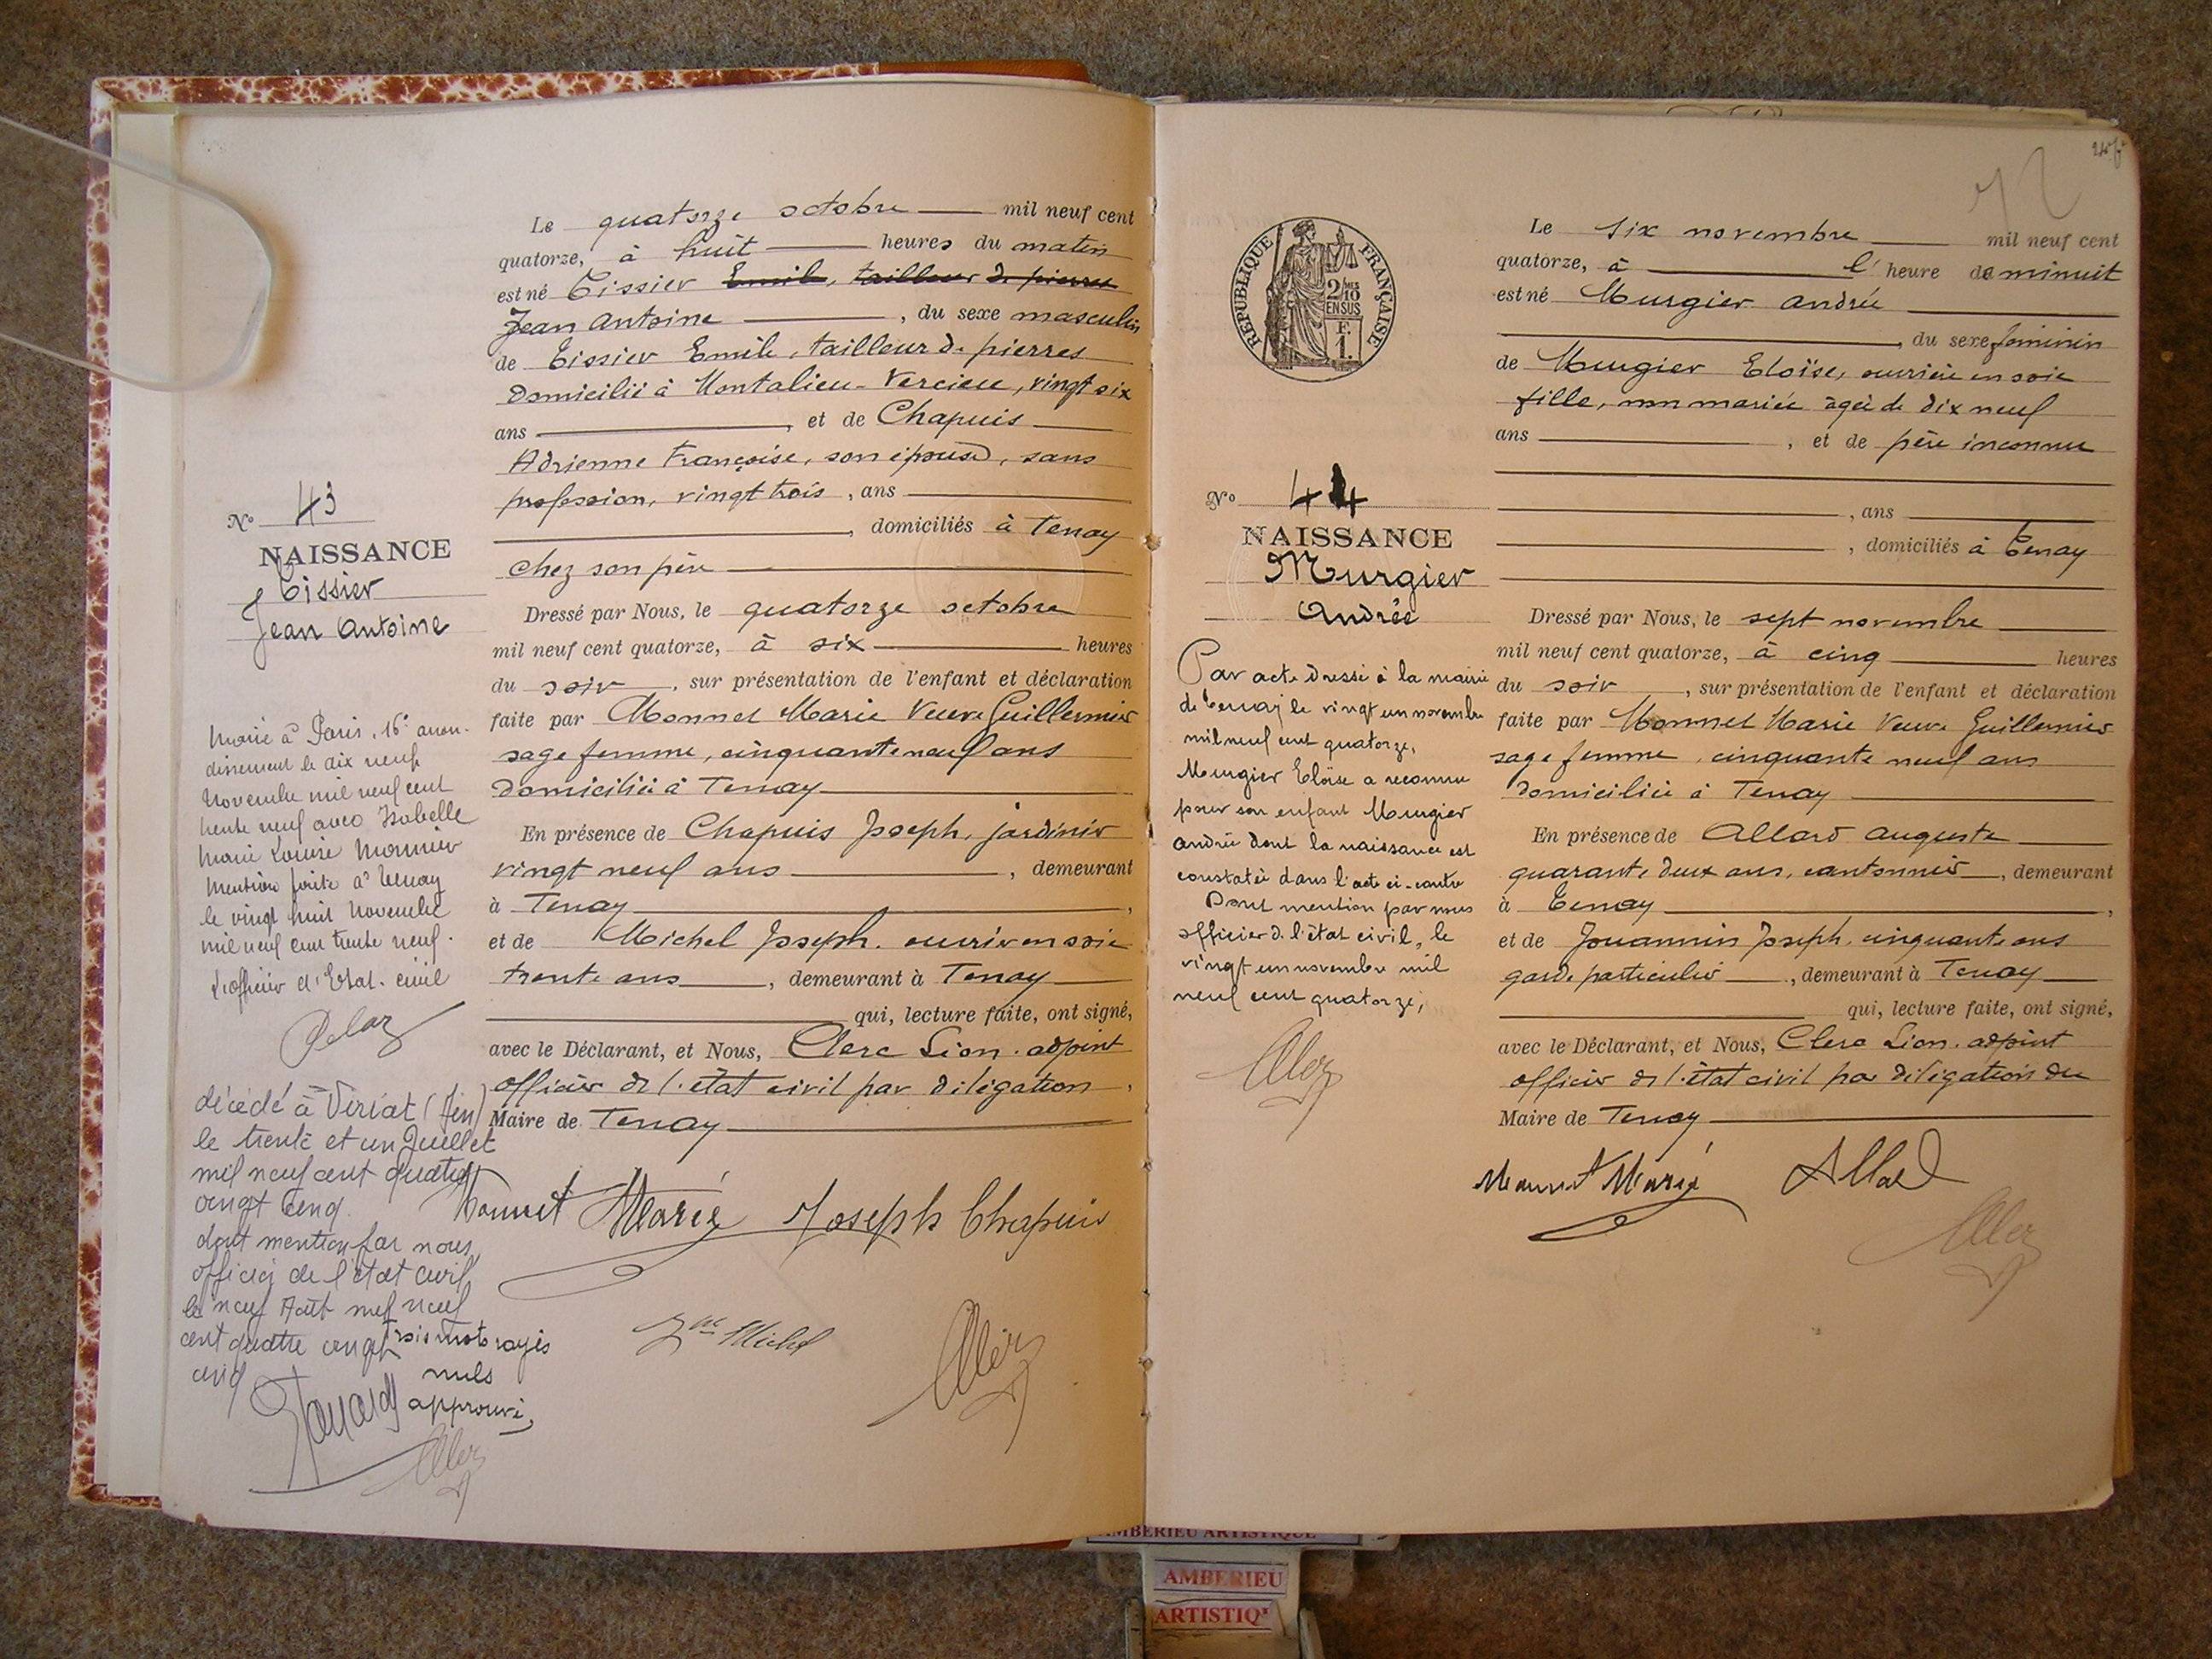 N° 43
NAISSANCE
Tissier
Jean Antoine
Marié à Paris, 16e arron-
dissement le dix neuf
Novembre mil neuf cent
trente neuf avec Isabelle
Marie Louise Monnier
Mention faite à Tenay
le vingt huit Novembre
mil neuf cent trente neuf.
L'officier d'Etat-civil
décédé à Viriat (Ain)
le trente et un Juillet
mil neuf cent quatre
vingt cinq
dont mention par nous
officier de l'état civil
le neuf Août mil neuf
cent quatre vingt
cinq
trois mots rayés
nuls
approuvé,
Le quatorze octobre mil neuf cent
quatorze, à huit heures du matin
est né Tissier Emile, tailleur de pierres
Jean Antoine, du sexe masculin
de Tissier Emile, tailleur de pierres
domicilié à Montalieu-Vercieu, vingt six
ans, et de Chapuis
Adrienne Françoise, son épouse, sans
profession, vingt trois, ans
, domiciliés à Tenay
chez son père
Dressé par Nous, le quatorze octobre
mil neuf cent quatorze, à six heures
du soir, sur présentation de l'enfant et déclaration
faite par Monnet Marie Veuve Guillermier
sage femme, cinquante neuf ans
domiciliée à Tenay
En présence de Chapuis Joseph, jardinier
vingt neuf ans, demeurant
à Tenay,
et de Michel Joseph, ouvrier en soie
trente ans, demeurant à Tenay
qui, lecture faite, ont signé,
avec le Déclarant, et Nous, Clerc Léon, adjoint
officier de l'état civil par délégation,
Maire de Tenay
Monnet Marie Joseph Chapuis
Michel
RÉPUBLIQUE FRANÇAISE
2/10
EN SUS
F.
1.
N° 44
NAISSANCE
Murgier
Andrée
Par acte dressé à la mairie
de Tenay le vingt un novembre
mil neuf cent quatorze,
Murgier Eloïse a reconnu
pour son enfant Murgier
Andrée dont la naissance est
constatée dans l'acte ci-contre
Dont mention par nous
officier de l'état civil, le
vingt un novembre mil
neuf cent quatorze,
Le six novembre mil neuf cent
quatorze, à l'heure de minuit
est né Murgier Andrée
, du sexe féminin
de Murgier Eloïse, ouvrière en soie
fille, non mariée âgée de dix neuf
ans, et de père inconnu
, ans
, domiciliés à Tenay
Dressé par Nous, le sept novembre
mil neuf cent quatorze, à cinq heures
du soir, sur présentation de l'enfant et déclaration
faite par Monnet Marie Veuve Guillermier
sage femme, cinquante neuf ans
domiciliée à Tenay
En présence de Allard Auguste
quarante deux ans, cantonnier, demeurant
à Tenay,
et de Jouannin Joseph, cinquante ans
garde particulier, demeurant à Tenay
qui, lecture faite, ont signé,
avec le Déclarant, et Nous, Clerc Léon, adjoint
officier de l'état civil par délégation du
Maire de Tenay
Monnet Marie Allard
AMBERIEU ARTISTIQUE
AMBERIEU
ARTISTIQ